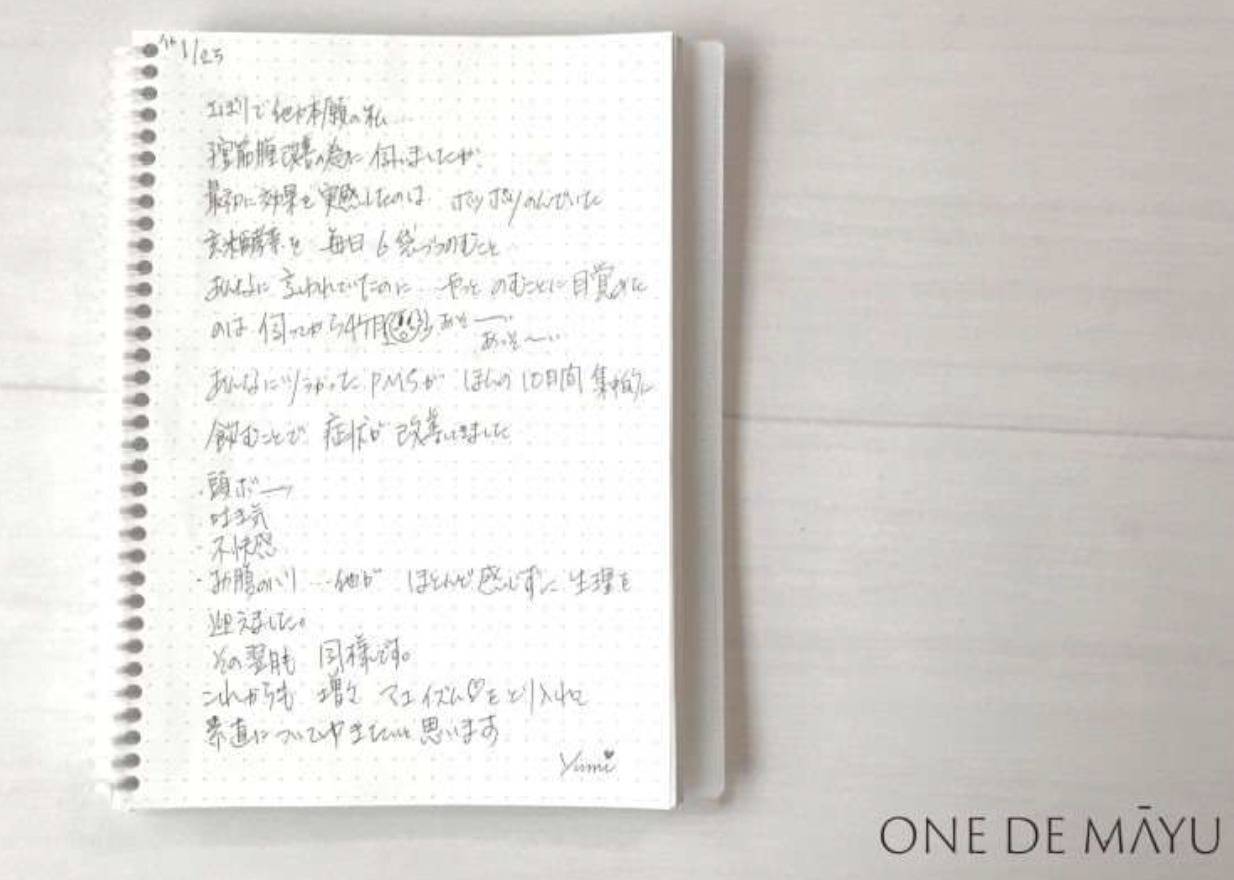 '16 1/25
よくばりで他力本願の私...
子宮筋腫改善の為に伺いましたが、
最初に効果を実感したのは ポツポツのんでいた
玄米酵素を 毎日6袋づつのむこと
あんなに言われていたのに... やっと のむことに目覚めた
のは 伺ってから4ヶ月 おそ〜い
おっそ〜い
あんなにツラかった PMSが ほんの10日間 集中的に
飲むことで 症状が 改善してきました
・頭ボー
・吐き気
・不快感
・お腹のハリ ...他が ほとんど感じずに 生理を
迎えました。
その翌月も 同様です。
これからも 増々 マユイズム♡をとり入れて
素直についてゆきたいと思います
Yumi♥
ONE DE MĀYU